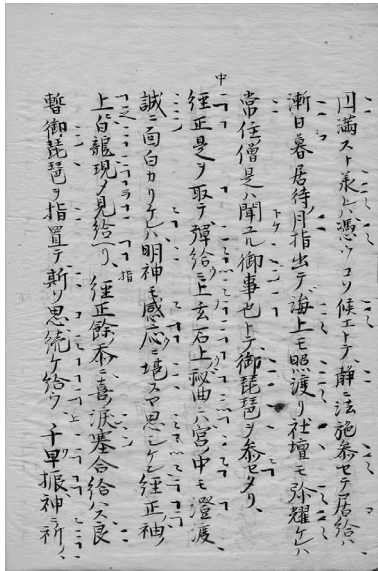 円満スト承レハ憑ウコソ候エトテ、静ニ法施参セテ居給ハ、
漸日暮居待月指出デ、海上モ照渡リ社壇モ弥耀ケレハ
常住僧是ハ聞ユル御事也トテ、御琵琶ヲ参セタリ、
経正是ヲ取テ、弾給ニ上玄石上秘曲ニハ宮ノ中モ澄渡、
誠ニ面白カリケレハ、明神モ感応ニ堪スヤ思シケン経正袖ノ
上白龍現メ見給ヘリ、経正餘忝ニ喜涙塞合給ハス良
暫御琵琶ヲ指置テ斯ソ思続ケ給ウ、千早振神ニ祈ノ、